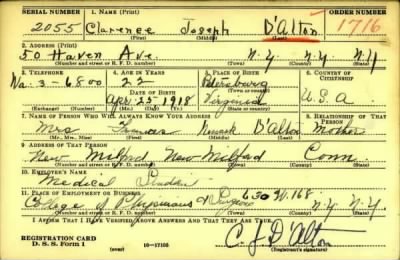 SERIAL NUMBER 1. NAME (Print) ORDER NUMBER
2055 Clarence Joseph D'Alton 1716
(First) (Middle) (Last)
2. ADDRESS (Print)
50 Haven Ave. N.Y. N.Y. N.Y.
(Number and street or R. F. D. number) (Town) (County) (State)
3. TELEPHONE 4. AGE IN YEARS 5. PLACE OF BIRTH 6. COUNTRY OF CITIZENSHIP
Wa. 3-6800 22 Petersburg
DATE OF BIRTH
Apr. 25 1918 Virginia U.S.A.
(Exchange) (Number) (Mo.) (Day) (Yr.) (State or country)
7. NAME OF PERSON WHO WILL ALWAYS KNOW YOUR ADDRESS 8. RELATIONSHIP OF THAT PERSON
Mrs D'Alton Mother
(Mr., Mrs., Miss) (First) (Middle) (Last)
9. ADDRESS OF THAT PERSON
New Milford New Milford Conn.
(Number and street or R. F. D. number) (Town) (County) (State)
10. EMPLOYER'S NAME
Medical Student
11. PLACE OF EMPLOYMENT OR BUSINESS
College of Physicians & Surgeons 630 W. 168 N.Y. N.Y.
(Number and street or R. F. D. number) (Town) (County) (State)
I AFFIRM THAT I HAVE VERIFIED ABOVE ANSWERS AND THAT THEY ARE TRUE.
REGISTRATION CARD
D. S. S. Form 1 (over) 16—17105 C. J. D'Alton
(Registrant's signature)